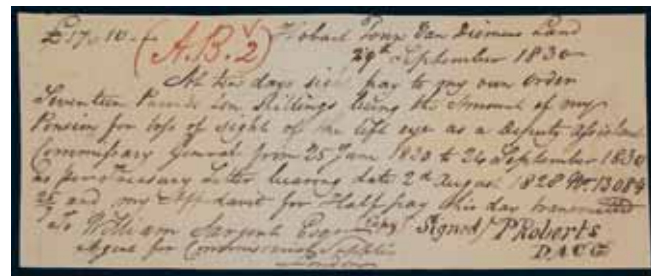 £17.10.-
(A.B.2)
Hobart Town Van Diemens Land
29th September 1830
At ten days sight pay to my own order
Seventeen Pounds Ten Shillings being the Amount of my
Pension for loss of sight of the left eye as a Deputy Assistant
Commissary General from 25 June 1830 to 24 September 1830
as per Treasury Letter bearing date 2d August 1828 No. 13089
and my Affidavit for Half pay this day transmitted
To William Sargent Esqr Copy Signed P Roberts
Agent for Commissariat Supplies D.A.C.G
London